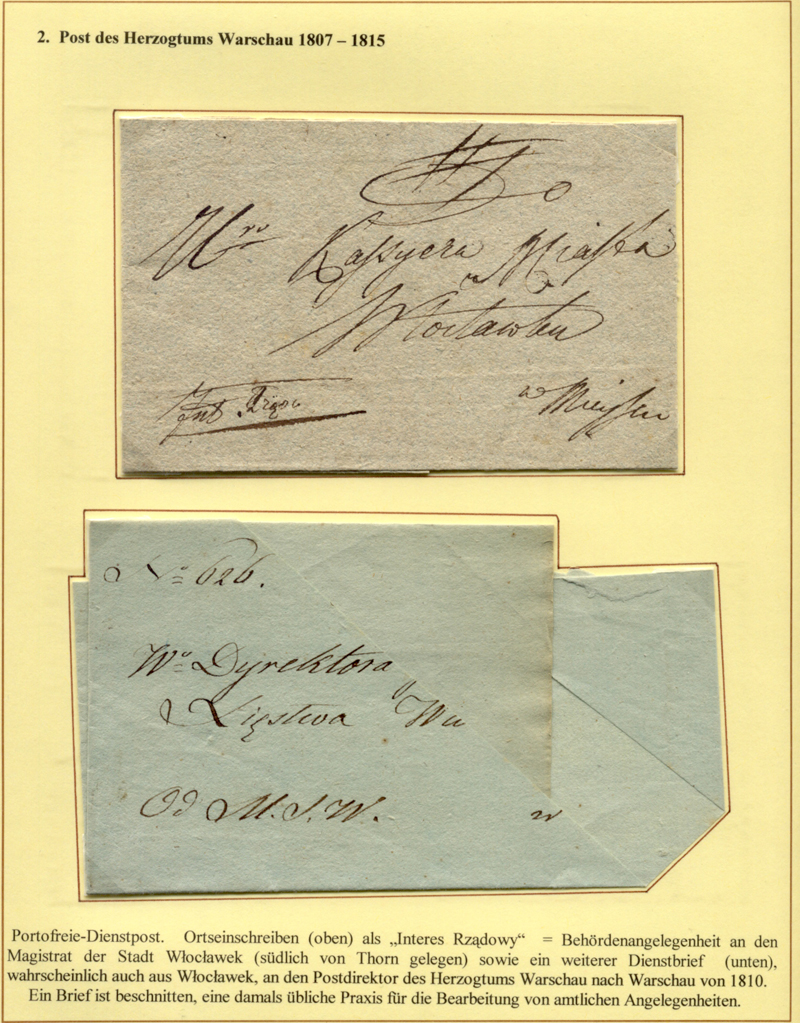 2. Post des Herzogtums Warschau 1807 – 1815
Kassyera Miasta
Włocławku
Int. Rządo
w Mieyscu
No 626.
Wo Dyrektora
Xięstwa Wa
Od M. S. W.
w
Portofreie-Dienstpost. Ortseinschreiben (oben) als „Interes Rządowy“ = Behördenangelegenheit an den
Magistrat der Stadt Włocławek (südlich von Thorn gelegen) sowie ein weiterer Dienstbrief (unten),
wahrscheinlich auch aus Włocławek, an den Postdirektor des Herzogtums Warschau nach Warschau von 1810.
Ein Brief ist beschnitten, eine damals übliche Praxis für die Bearbeitung von amtlichen Angelegenheiten.